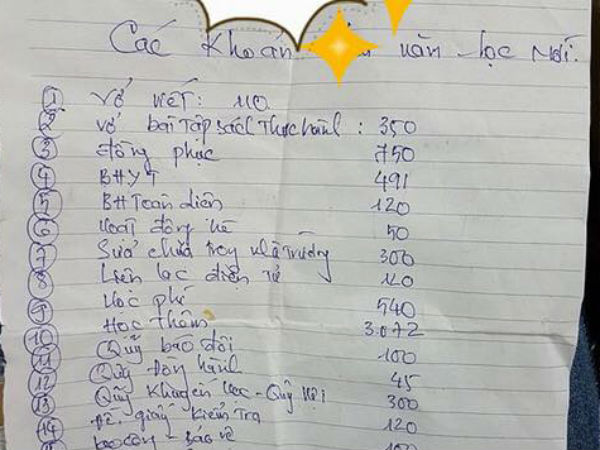 Các Khoản năm học Mới.
① Vở viết: 110.
② Vở bài tập sách thực hành : 350
③ đồng phục 750
④ BHYT 491
⑤ BH Toàn diện 120
⑥ hoạt động hè 50
⑦ Sửa chữa trong nhà trường 300
⑧ Liên lạc điện tử 120
⑨ Học phí 540
⑩ Học thêm 3.072
⑪ Quỹ bao đội 100
⑫ Quỹ Đồng hành 45
⑬ Quỹ Khuyến học - Quỹ hội 300
⑭ Đề, giấy kiểm tra 120
- Bảo vệ 100